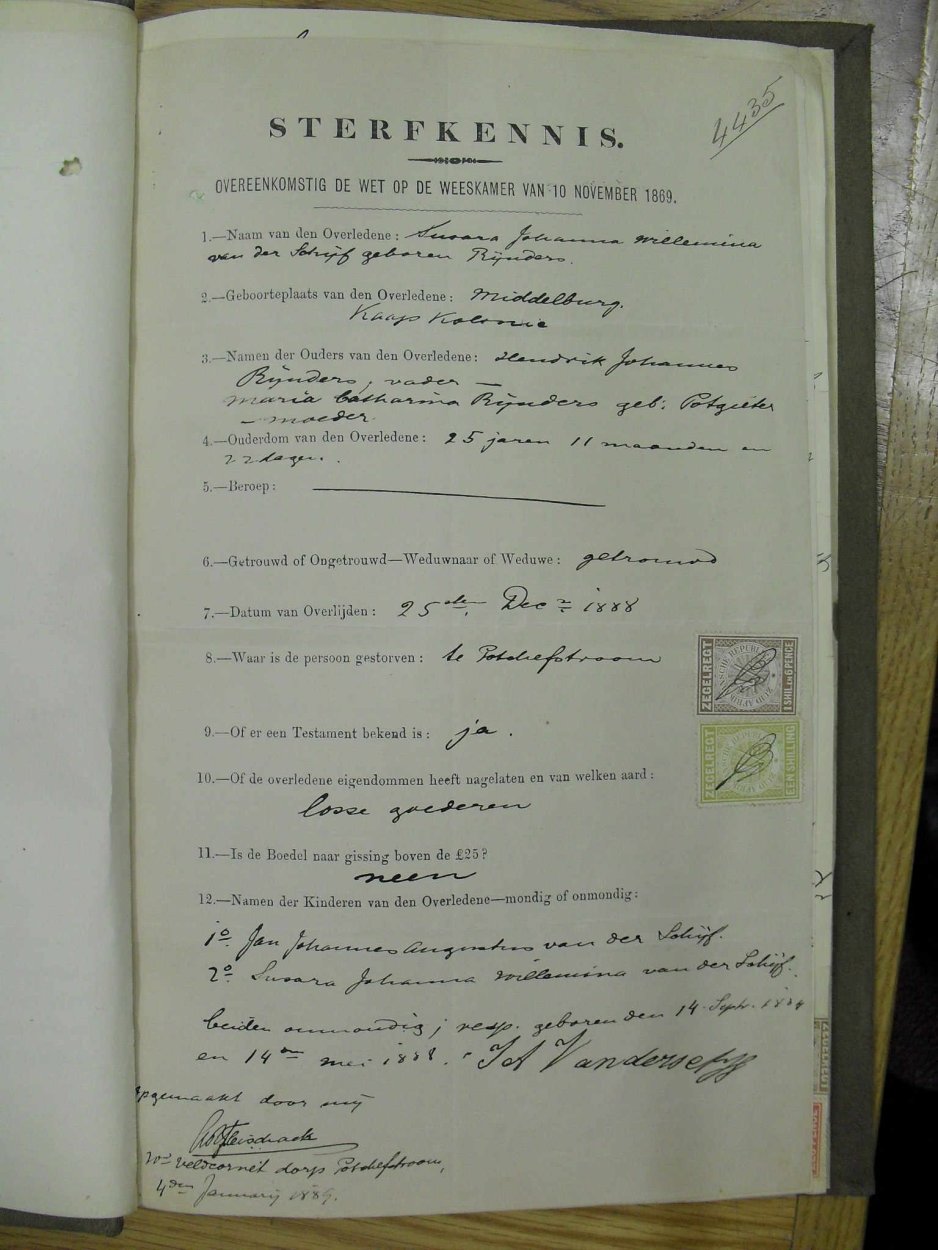 4435
STERFKENNIS.
OVEREENKOMSTIG DE WET OP DE WEESKAMER VAN 10 NOVEMBER 1869.
1.—Naam van den Overledene: Susara Johanna Willemina
van der Schijf geboren Rijnders.
2.—Geboorteplaats van den Overledene: Middelburg.
Kaap Kolonie
3.—Namen der Ouders van den Overledene: Hendrik Johannes
Rijnders, vader —
Maria Catharina Rijnders geb: Potgieter
— moeder
4.—Ouderdom van den Overledene: 25 jaren 11 maanden en
22 dagen.
5.—Beroep:
6.—Getrouwd of Ongetrouwd—Weduwnaar of Weduwe: getrouwd
7.—Datum van Overlijden: 25sten Decr 1888
8.—Waar is de persoon gestorven: te Potchefstroom
ZEGELREGT
1 SHIL. EN 6 PENCE
9.—Of er een Testament bekend is: ja.
ZEGELREGT
EEN SHILLING
10.—Of de overledene eigendommen heeft nagelaten en van welken aard:
losse goederen
11.—Is de Boedel naar gissing boven de £25?
neen
12.—Namen der Kinderen van den Overledene—mondig of onmondig:
1o. Jan Johannes Augustus van der Schijf.
2o. Susara Johanna Willemina van der Schijf.
beiden onmondig; resp. geboren den 14 Septr. 1884
en 14en mei 1888.
opgemaakt door mij
Veldcornet dorp Potchefstroom,
4den Januarij 1889.